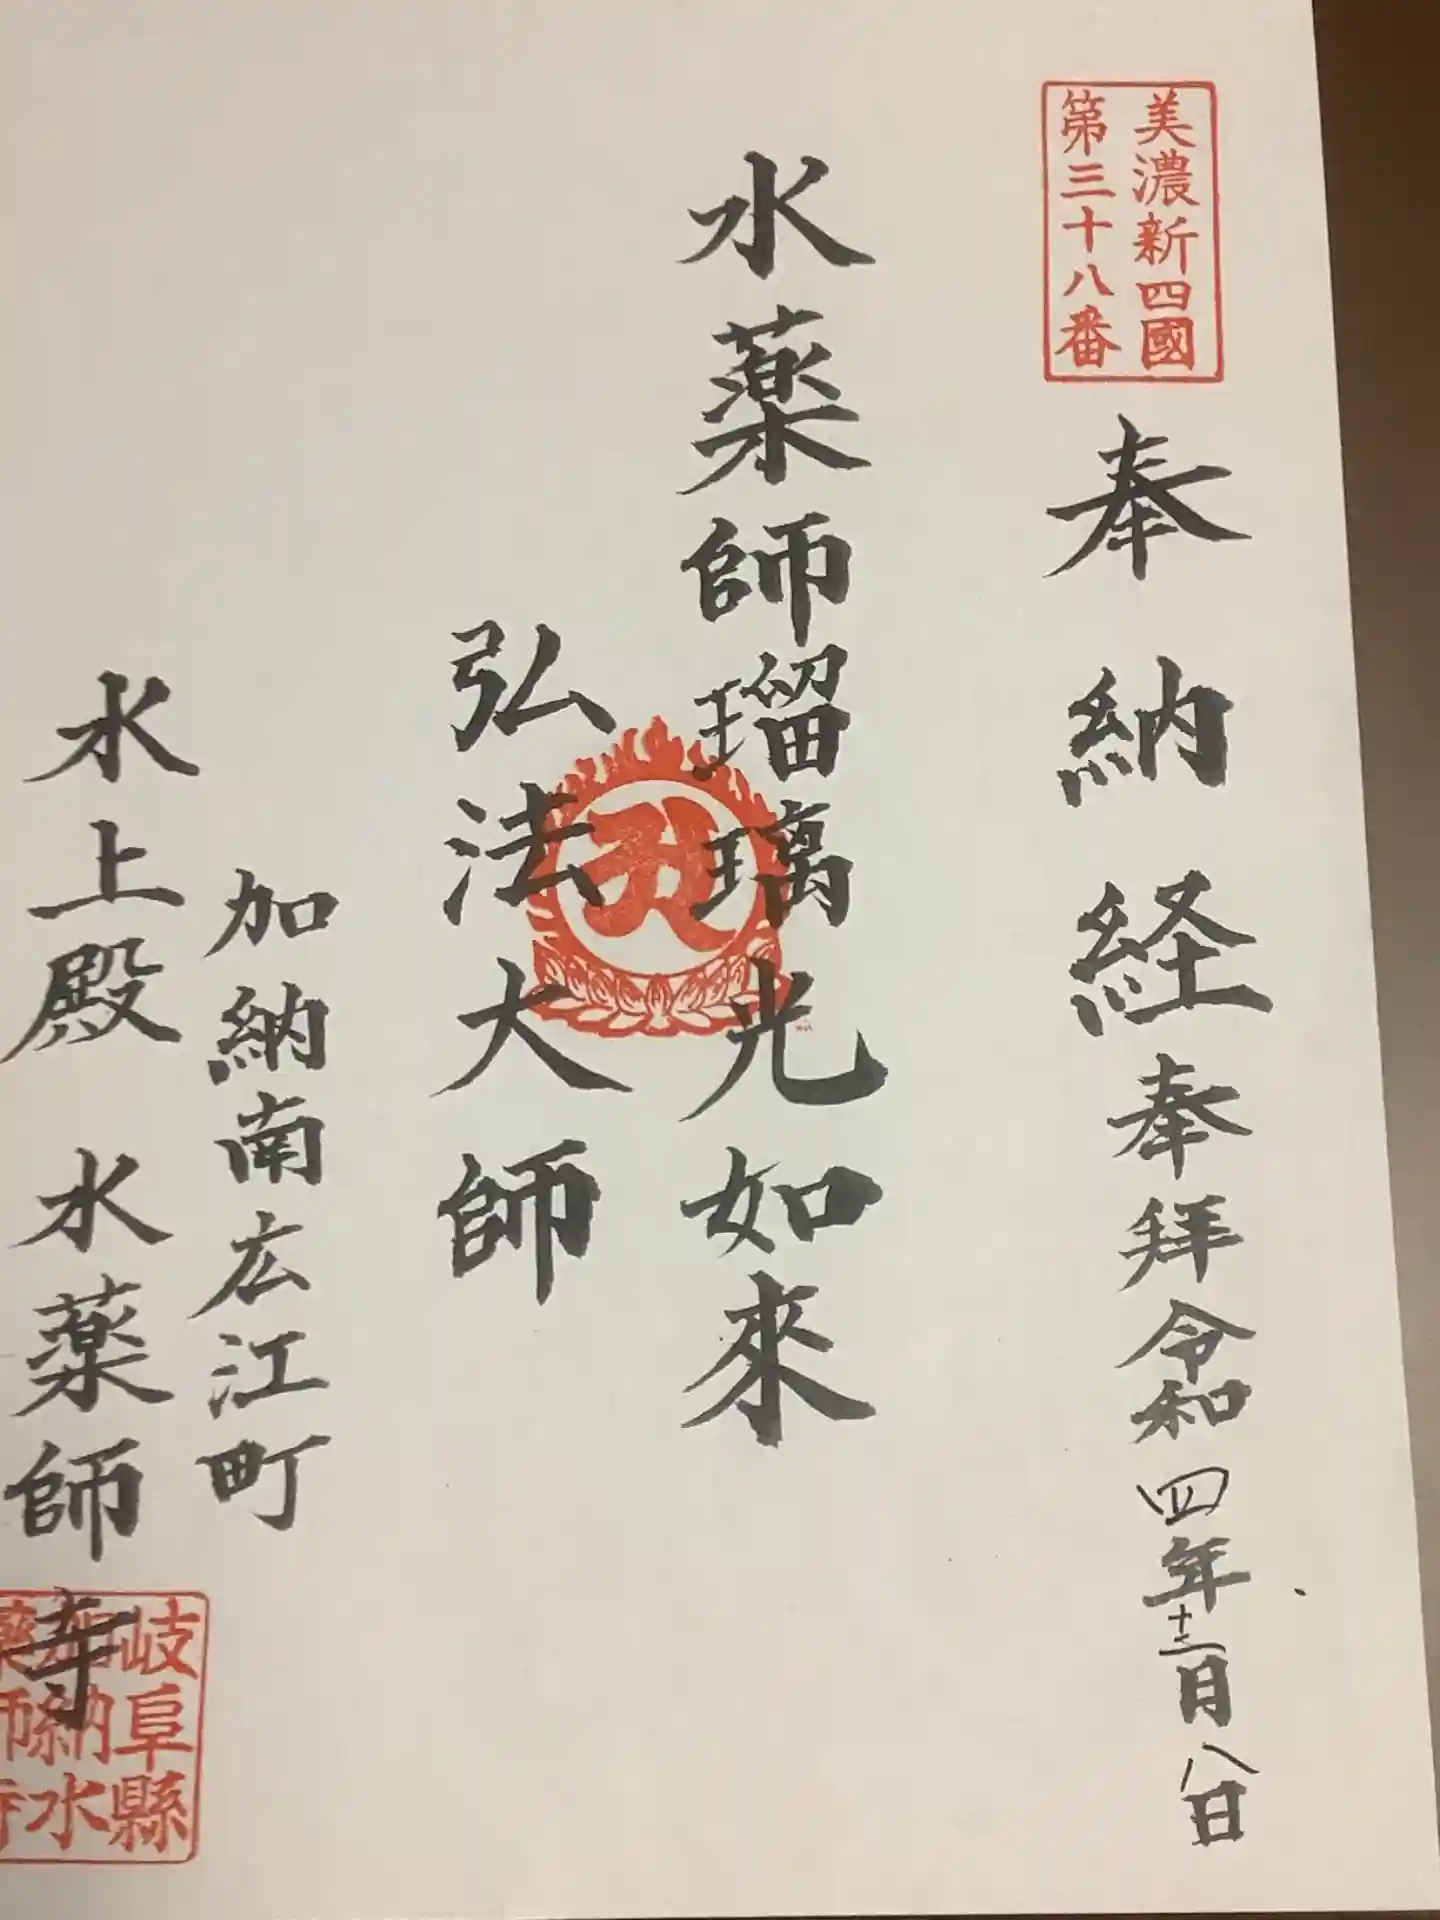 美濃新四國
第三十八番
奉納経奉拜令和四年十二月八日
水薬師瑠璃光如來
弘法大師
加納南広江町
水上殿 水薬師寺
岐阜縣
加納水
薬師寺